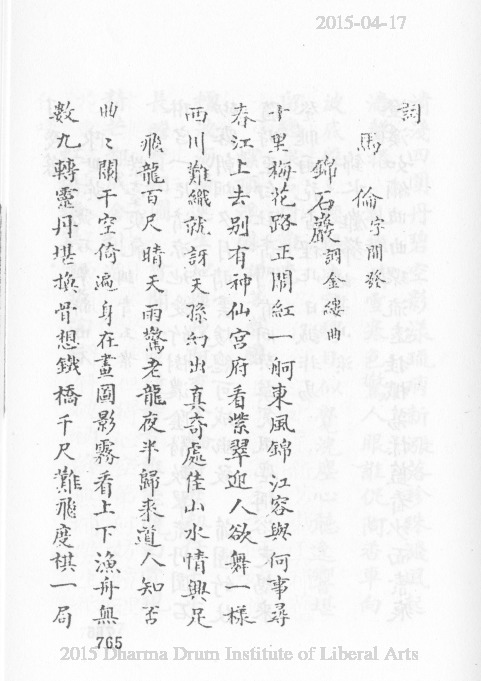 2015-04-17
詞
馬倫字開發
錦石巖調金縷曲
十里梅花路正閙紅一舸東風錦江容與何事尋
春江上去别有神仙宮府看紫翠迎人欲舞一樣
西川難織就訝天孫幻出真奇處佳山水情興足
飛龍百尺晴天雨驚老龍夜半歸來道人知否
曲〻闌干空倚遍身在畫圖影霧看上下漁舟無
數九轉靈丹堪換骨想鐵橋千尺難飛度棋一局
765
2015 Dharma Drum Institute of Liberal Arts